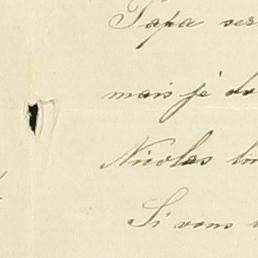 Papa ser
mais je do
Nicolas lu
Si vous